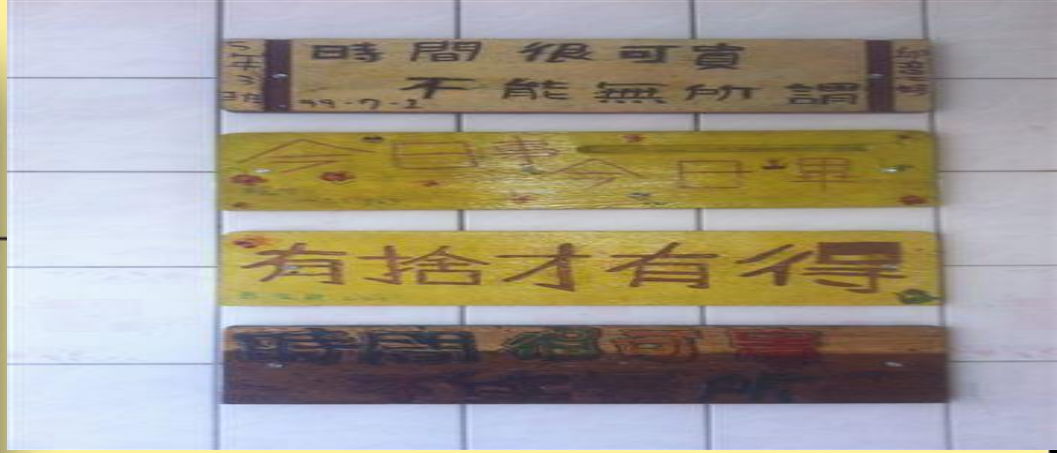 時間很可貴
不能無所謂
今日事
今日畢
有捨才有得
時間很可貴
所